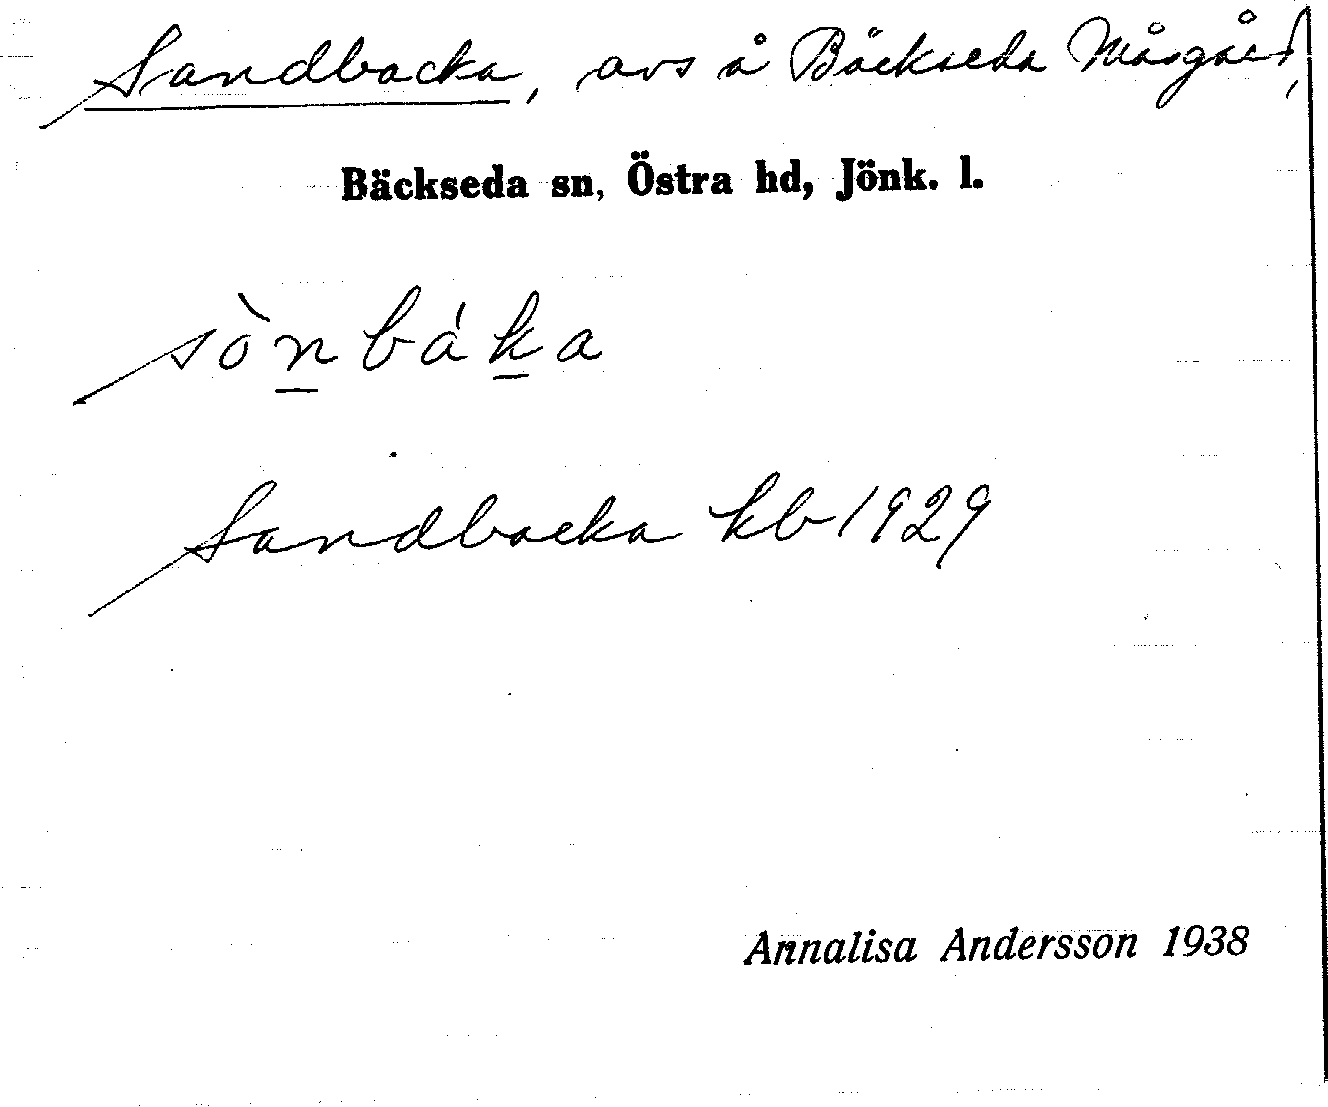 Sandbacka, avs å Bäckseda Måsgård,
Bäckseda sn, Östra hd, Jönk. l.
sòn̲bák̲a
Sandbacka kb 1929
Annalisa Andersson 1938